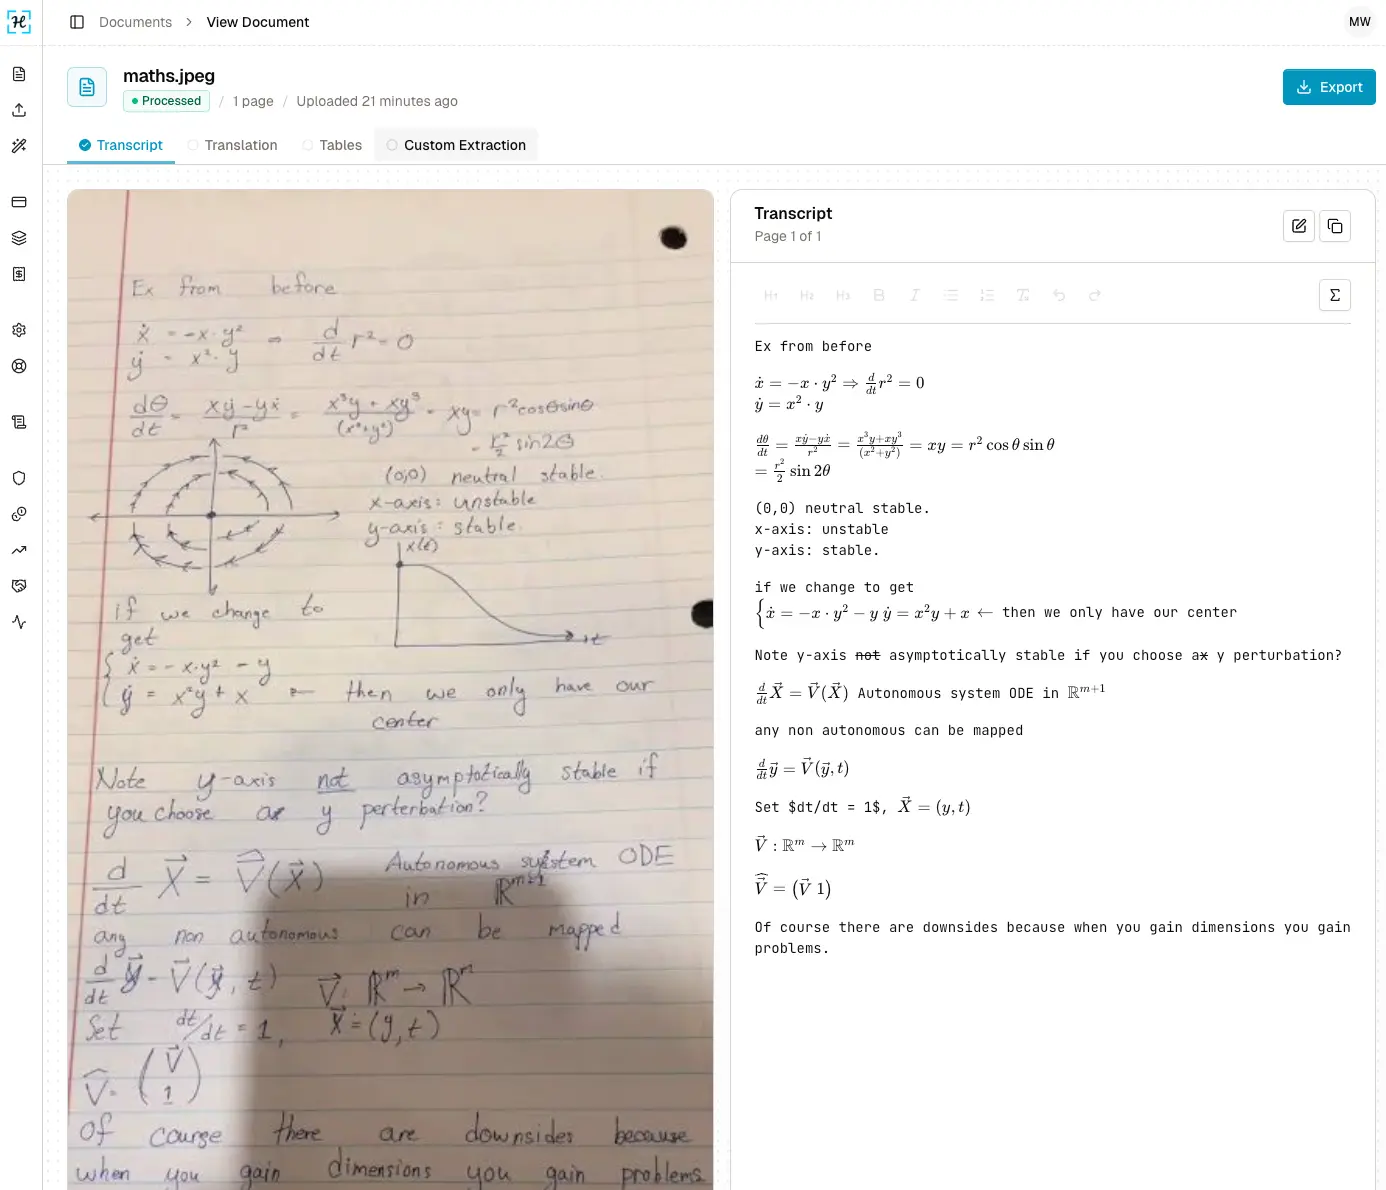 Documents > View Document
MW
maths.jpeg
Processed / 1 page / Uploaded 21 minutes ago
Export
Transcript Translation Tables Custom Extraction
Ex from before
ẋ = -x·y² ⇒ d/dt r² = 0
ẏ = x²·y
dθ/dt = (xẏ - yẋ)/r² = (x³y + xy³)/(x²+y²) = xy = r²cosθsinθ
= r²/2 sin2θ
(0,0) neutral stable.
x-axis: unstable
y-axis: stable.
x(t)
t
if we change to
get
{ ẋ = -x·y² - y
ẏ = x²y + x ← then we only have our
center
Note y-axis not asymptotically stable if
you choose a y perterbation?
d/dt X⃗ = V̂⃗(X⃗) Autonomous system ODE
in ℝᵐ⁺¹
any non autonomous can be mapped
d/dt y⃗ = V⃗(y⃗, t) V⃗: ℝᵐ → ℝᵐ
Set dt/dt = 1, X⃗ = (y, t)
V̂ = (V⃗
1)
Of course there are downsides because
when you gain dimensions you gain problems
Transcript
Page 1 of 1
H1 H2 H3 B I
Σ
Ex from before
ẋ = −x · y² ⇒ d/dt r² = 0
ẏ = x² · y
dθ/dt = (xẏ−yẋ)/r² = (x³y+xy³)/(x²+y²) = xy = r² cos θ sin θ
= r²/2 sin 2θ
(0,0) neutral stable.
x-axis: unstable
y-axis: stable.
if we change to get
{ẋ = −x · y² − y ẏ = x²y + x ← then we only have our center
Note y-axis not asymptotically stable if you choose ax y perturbation?
d/dt X⃗ = V⃗(X⃗) Autonomous system ODE in ℝᵐ⁺¹
any non autonomous can be mapped
d/dt y⃗ = V⃗(y⃗, t)
Set $dt/dt = 1$, X⃗ = (y, t)
V⃗ : ℝᵐ → ℝᵐ
V̂⃗ = (V⃗ 1)
Of course there are downsides because when you gain dimensions you gain
problems.